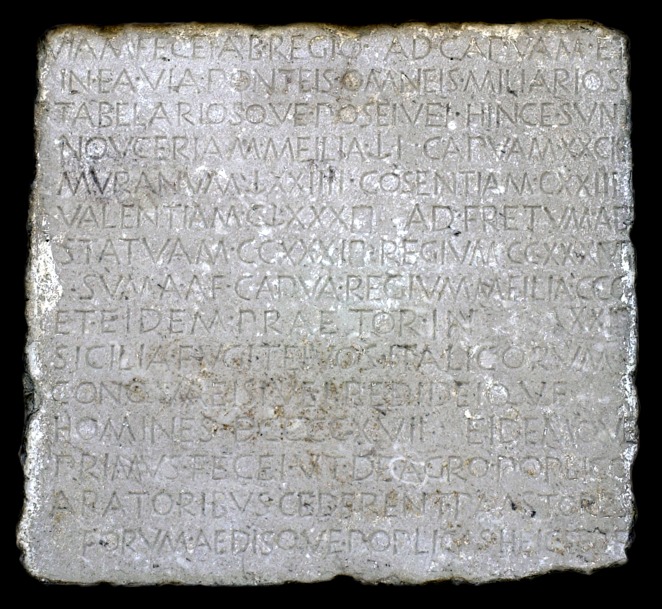 VIAM·FECEI·AB·REGIO·AD·CAPVAM·ET
IN·EA·VIA·PONTEIS·OMNEIS·MILIARIOS
TABELARIOSQVE·POSEIVEI·HINCE·SVNT
NOVCERIAM·MEILIA·LI·CAPVAM·XXCI
MVRANVM·LXXIIII·COSENTIAM·CXXIII
VALENTIAM·CLXXXII AD·FRETVM·AD
STATVAM·CCXXXII·REGIVM·CCXXXVII
SVM·A·AF·CAPVA·REGIVM·MEILIA·CCC
ET·EIDEM·PRAETOR·IN
SICILIA·FVGITEIVOS·ITALICORVM
CONQVAEISIVEI·REDIDEIQVE
HOMINES·DCCCCXVII EIDEMQVE
PRIMVS·FECEI·VT·DE·AGRO·POPLICO
ARATORIBVS·CEDERENT·PAASTORES
FORVM·AEDISQVE·POPLICAS·HEIC